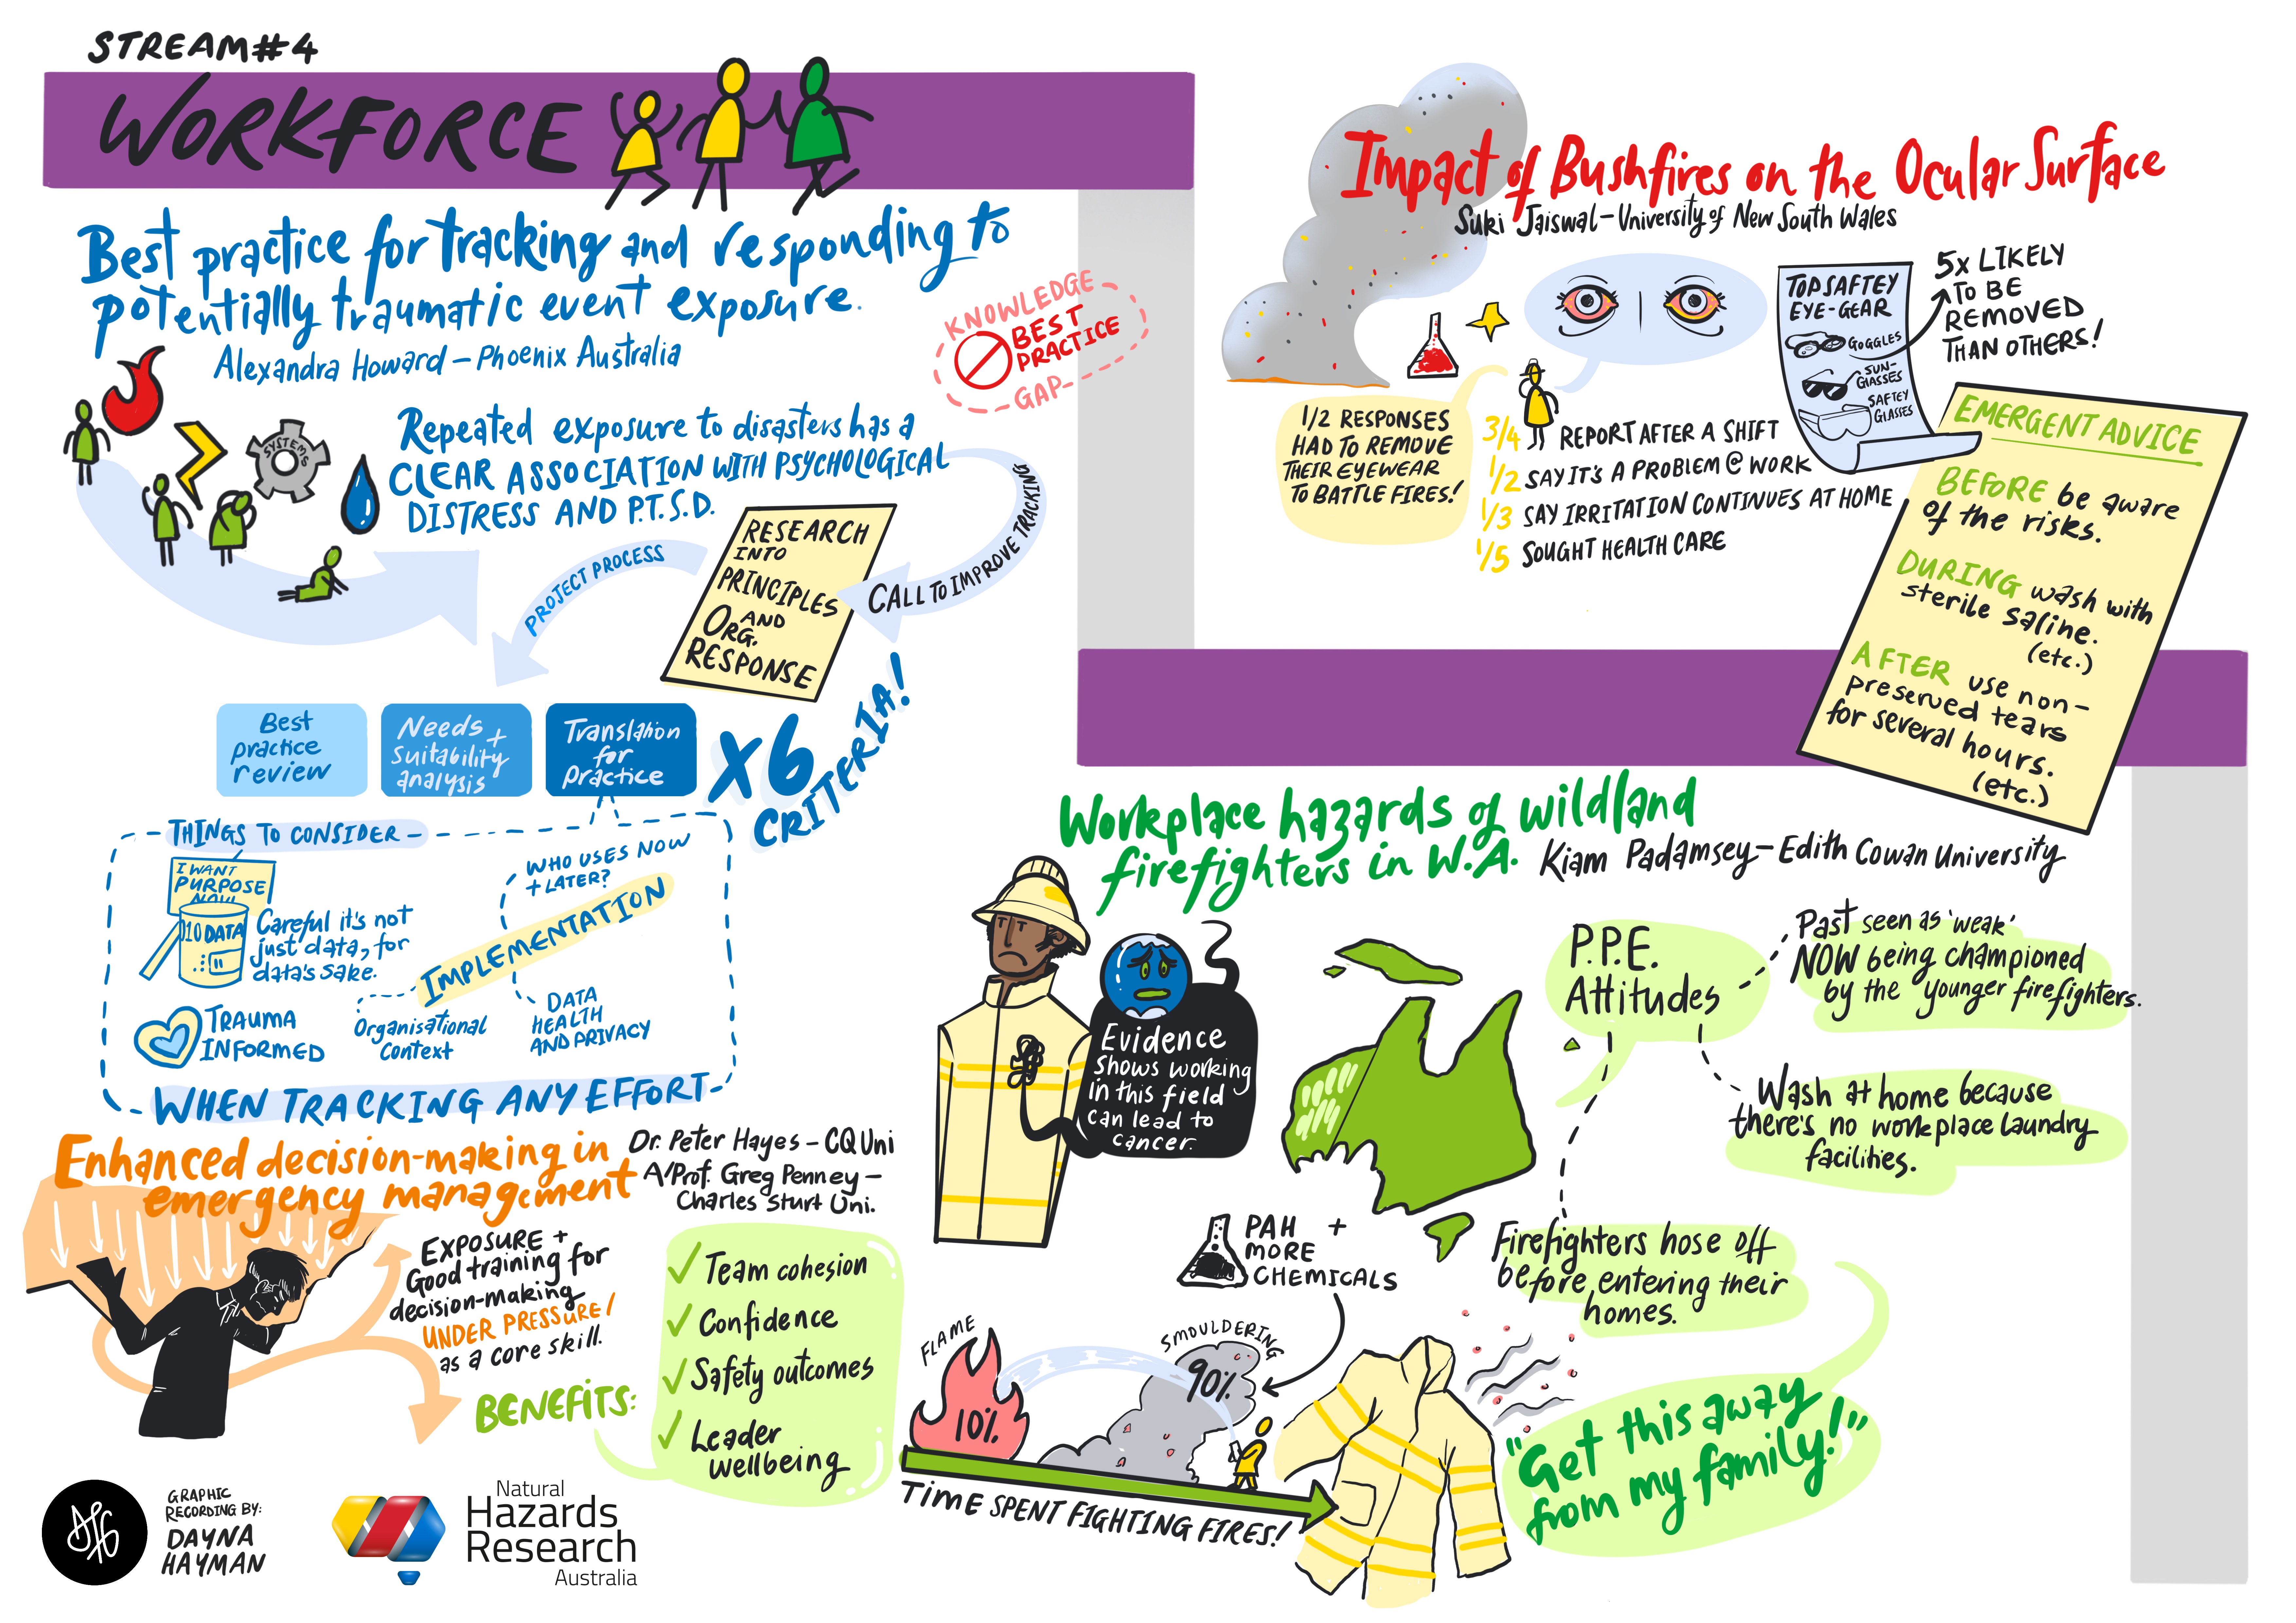 STREAM#4
WORKFORCE
Best practice for tracking and responding to
potentially traumatic event exposure.
Alexandra Howard – Phoenix Australia
KNOWLEDGE
BEST
PRACTICE
GAP
SYSTEMS
Repeated exposure to disasters has a
CLEAR ASSOCIATION WITH PSYCHOLOGICAL
DISTRESS AND P.T.S.D.
CALL TO IMPROVE TRACKING
RESEARCH
INTO
PRINCIPLES
AND
ORG.
RESPONSE
PROJECT PROCESS
Best
practice
review
Needs +
Suitability
analysis
Translation
for
practice
x6
CRITERIA!
THINGS TO CONSIDER
I WANT
PURPOSE
NOW!
010 DATA
Careful it's not
just data, for
data's sake.
WHO USES NOW
+ LATER?
IMPLEMENTATION
TRAUMA
INFORMED
Organisational
Context
DATA
HEALTH
AND PRIVACY
WHEN TRACKING ANY EFFORT
Enhanced decision-making in
emergency management
Dr. Peter Hayes – CQ Uni
A/Prof. Greg Penney –
Charles Sturt Uni.
EXPOSURE +
Good training for
decision-making
UNDER PRESSURE!
as a core skill.
BENEFITS:
Team cohesion
Confidence
Safety outcomes
Leader
wellbeing
GRAPHIC
RECORDING BY:
DAYNA
HAYMAN
Natural
Hazards
Research
Australia
Impact of Bushfires on the Ocular Surface
Suki Jaiswal – University of New South Wales
TOP SAFTEY
EYE-GEAR
GOGGLES
SUN-
GLASSES
SAFTEY
GLASSES
5x LIKELY
TO BE
REMOVED
THAN OTHERS!
1/2 RESPONSES
HAD TO REMOVE
THEIR EYEWEAR
TO BATTLE FIRES!
3/4 REPORT AFTER A SHIFT
1/2 SAY IT'S A PROBLEM @ WORK
1/3 SAY IRRITATION CONTINUES AT HOME
1/5 SOUGHT HEALTH CARE
EMERGENT ADVICE
BEFORE be aware
of the risks.
DURING wash with
sterile saline.
(etc.)
AFTER use non-
preserved tears
for several hours.
(etc.)
Workplace hazards of wildland
firefighters in W.A. Kiam Padamsey – Edith Cowan University
Evidence
shows working
in this field
can lead to
cancer.
P.P.E.
Attitudes
Past seen as 'weak'
NOW being championed
by the younger firefighters.
Wash at home because
there's no workplace laundry
facilities.
Firefighters hose off
before entering their
homes.
"Get this away
from my family!"
PAH +
MORE
CHEMICALS
FLAME
10%
SMOULDERING
90%
TIME SPENT FIGHTING FIRES!